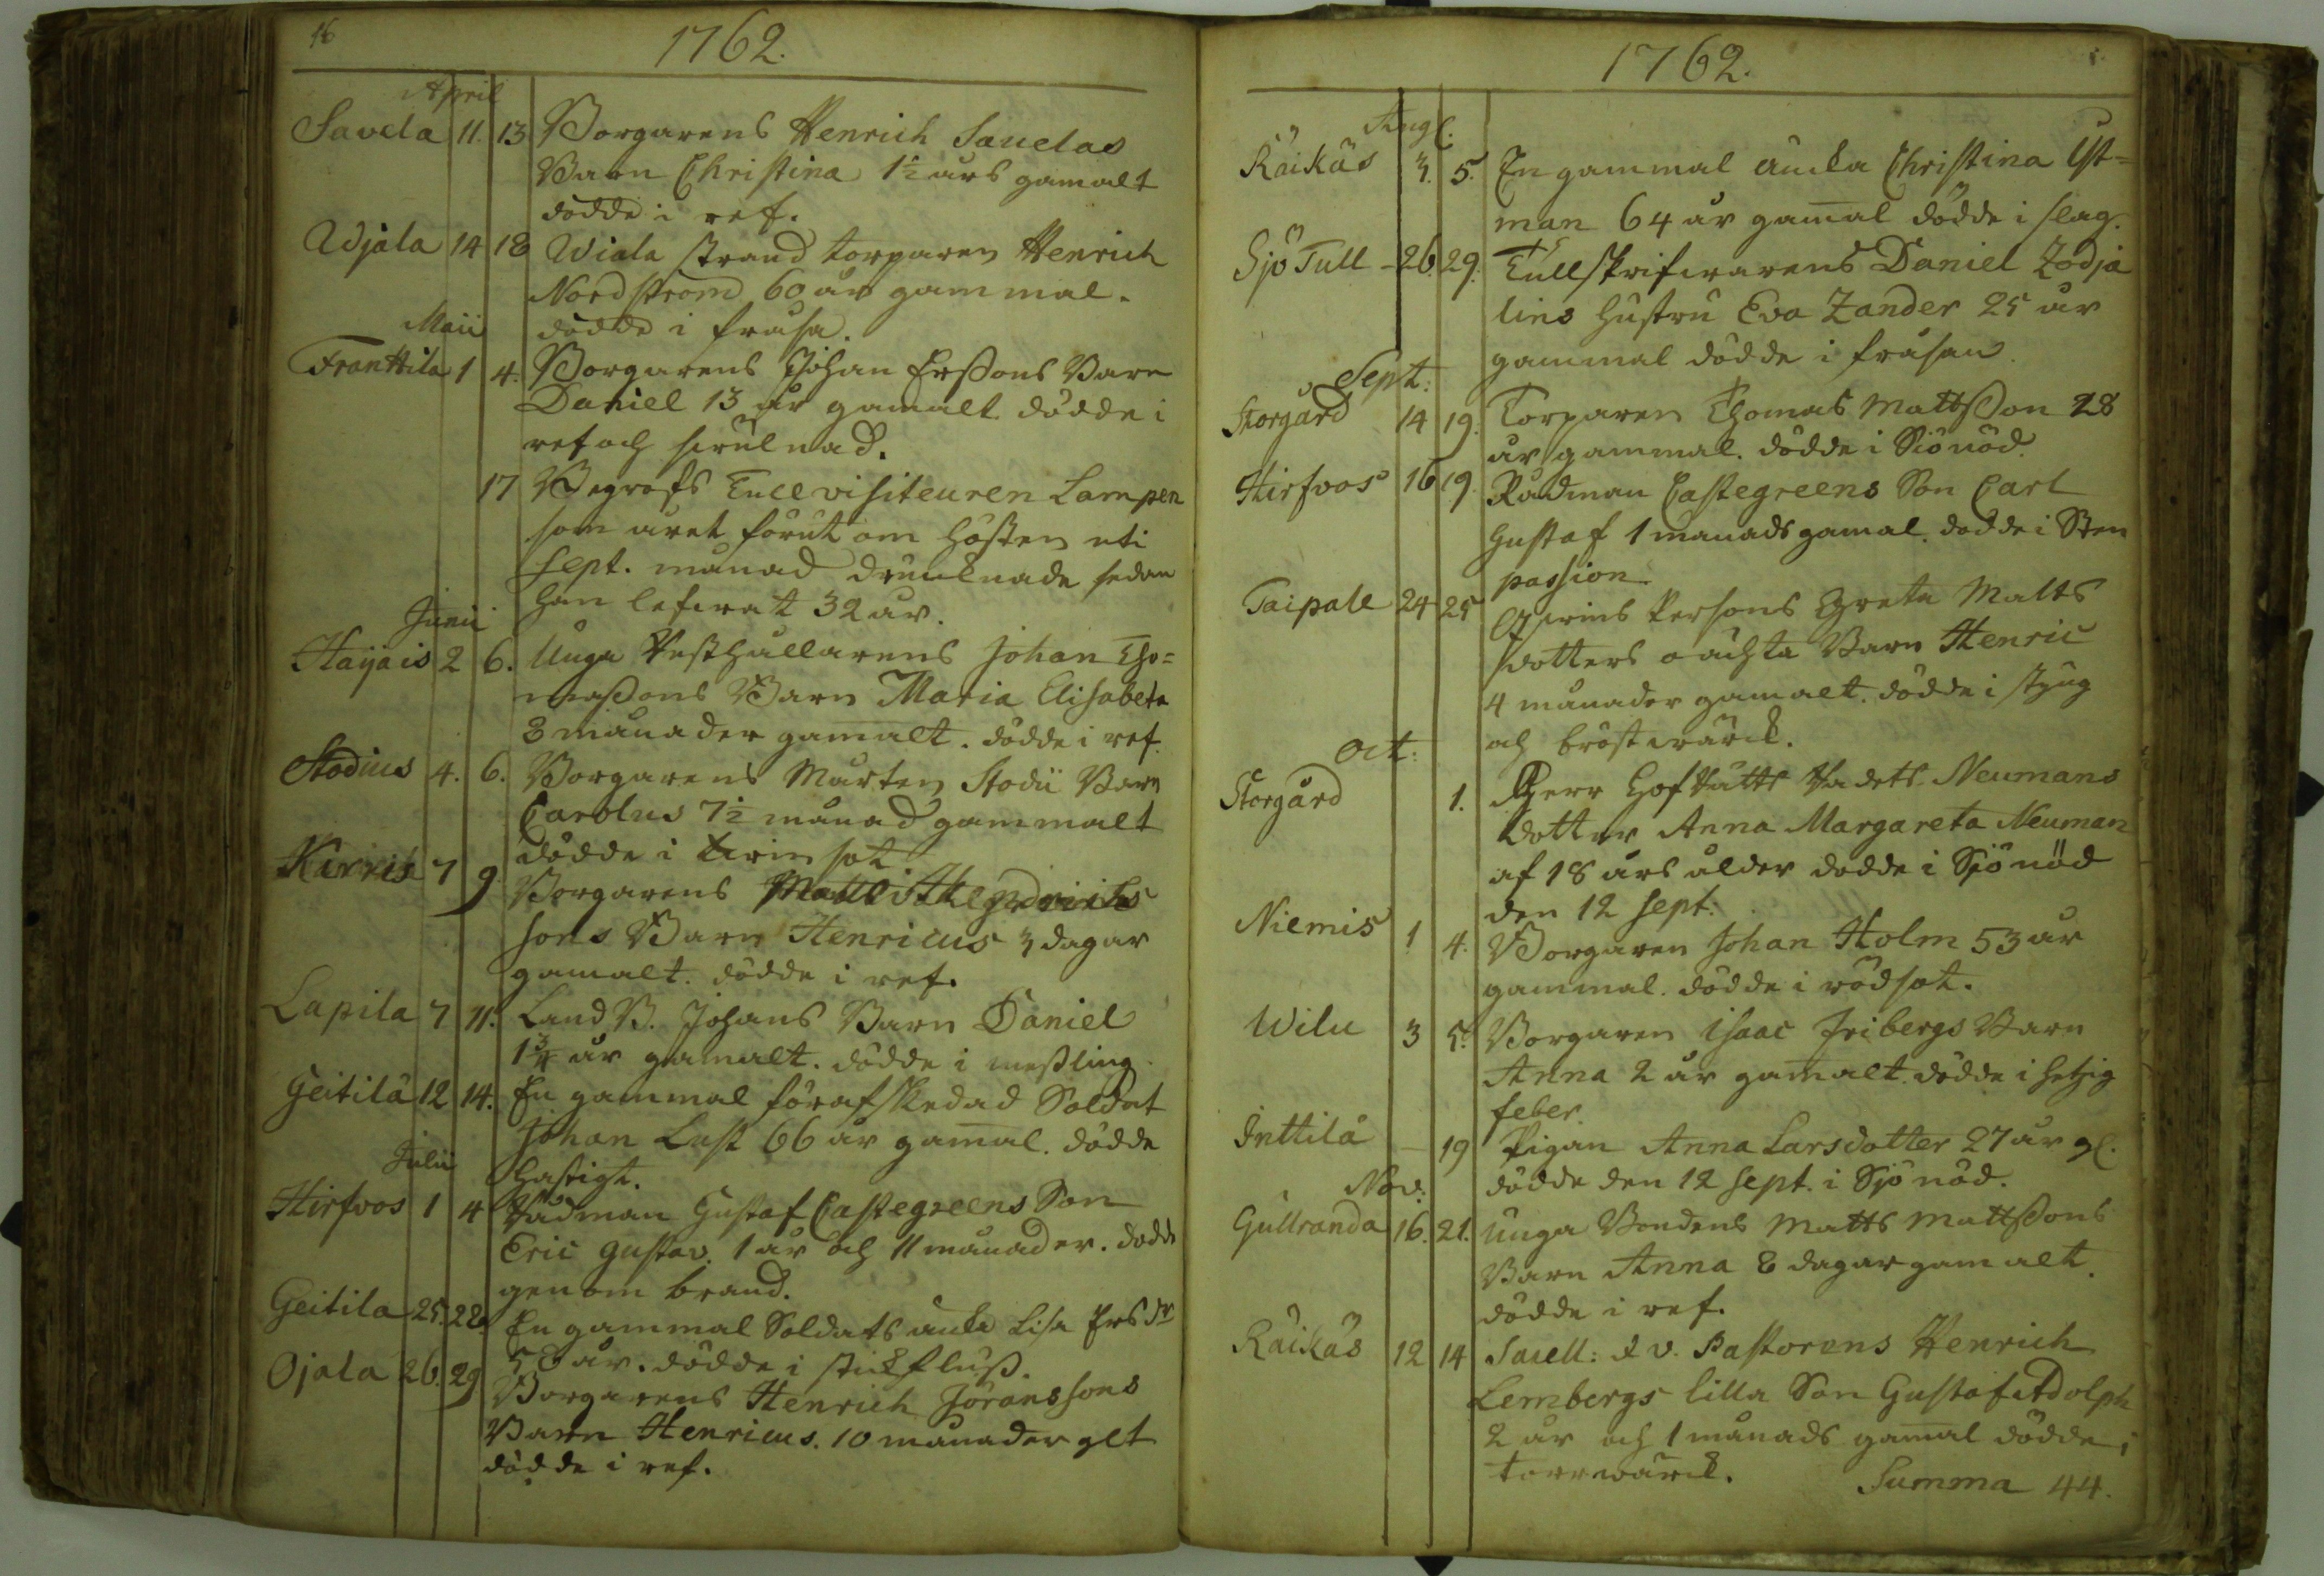 16
1762.
April
Savela 11. 13 Borgarens Henrich Sauelas
Barn Christina 1½ års gamalt
dödde i ref.
Wjala 14 18 Wiala strand torparen Henrich
Nordström 60 år gammal.
dödde i fråsa.
Maii
Franttila 1 4. Borgarens Johan Erssons Barn
Daniel 13 år gamalt dödde i
ref och
17 Begrofs Tullvisiteuren Lampen
som året förut om hösten uti
Sept. månad drunknade sedan
han lefwat 32 år.
Junii
Haijais 2 6. Unga Johan Tho=
massons Barn Maria Elisabeta
8 månader gamalt. dödde i ref.
Stodius 4. 6. Borgarens Mårten Stodii Barn
Carolus 7½ månad gammalt
dödde i twinsot
Kirris 7 9 Borgarens Matts Hendrichs
sons Barn Henricus 3 dagar
gamalt. dödde i ref.
Lapila 7 11. Land B. Johans Barn Daniel
1¾ år gamalt. dödde i messling
Geitila 12 14. En gammal förafskedad Soldat
Johan Lust 66 år gamal. dödde
hastigt.
Julii
Hirfvos 1 4 Rådman Gustaf Castegreens Son
Eric Gustav. 1 år och 11 månader. dödde
genom brand.
Geitila 25. 28. En gammal Soldats änka Lisa Ersdr
58 år. dödde i stickfluss.
Ojala 26. 29 Borgarens Henrich Jöranssons
Barn Henricus. 10 månader glt
dödde i ref.
1762.
Aug.
Räikäs 3. 5. En gammal äncka Christina Ust=
man 64 år gamal dödde i slag.
Sjö Tull - 26. 29. Tullskrifwarens Daniel Zodja
lins hustru Eva Zander 25 år
gammal dödde i fråsan.
Sept:
Storgård 14 19. Torparen Thomas Mattsson 28
år gammal. dödde i Siönöd.
Hirfvos 16 19. Rådman Castegreens Son Carl
Gustaf 1 månads gamal. dödde i Sten
passion
Taipale 24 25 Qwins Persons Greta Matts
dotters oächta Barn Henric
4 månader gamalt. dödde i styng
och bröstwärck.
Oct:
Storgård 1. Herr Neumans
dotter Anna Margareta Neuman
af 18 års ålder dödde i Sjönöd
den 12 Sept:
Niemis 1 4. Borgaren Johan Holm 53 år
gammal. dödde i rödsot.
Wilu 3 5. Borgaren Isaac Fribergs Barn
Anna 2 år gamalt. dödde i hetzig
feber.
Inttilä - 19 Pigan Anna Larsdotter 27 år gl.
dödde den 12 Sept. i Sjönöd.
Nov:
Gullranda 16. 21. Unga Bondens Matts Mattssons
Barn Anna 8 dagar gamalt.
dödde i ref.
Räikäs 12 14 Sacell: & v. Pastorens Henrich
Lembergs lilla Son Gustaf Adolph
2 år och 1 månads gamal dödde i
torrwärck. Summa 44.